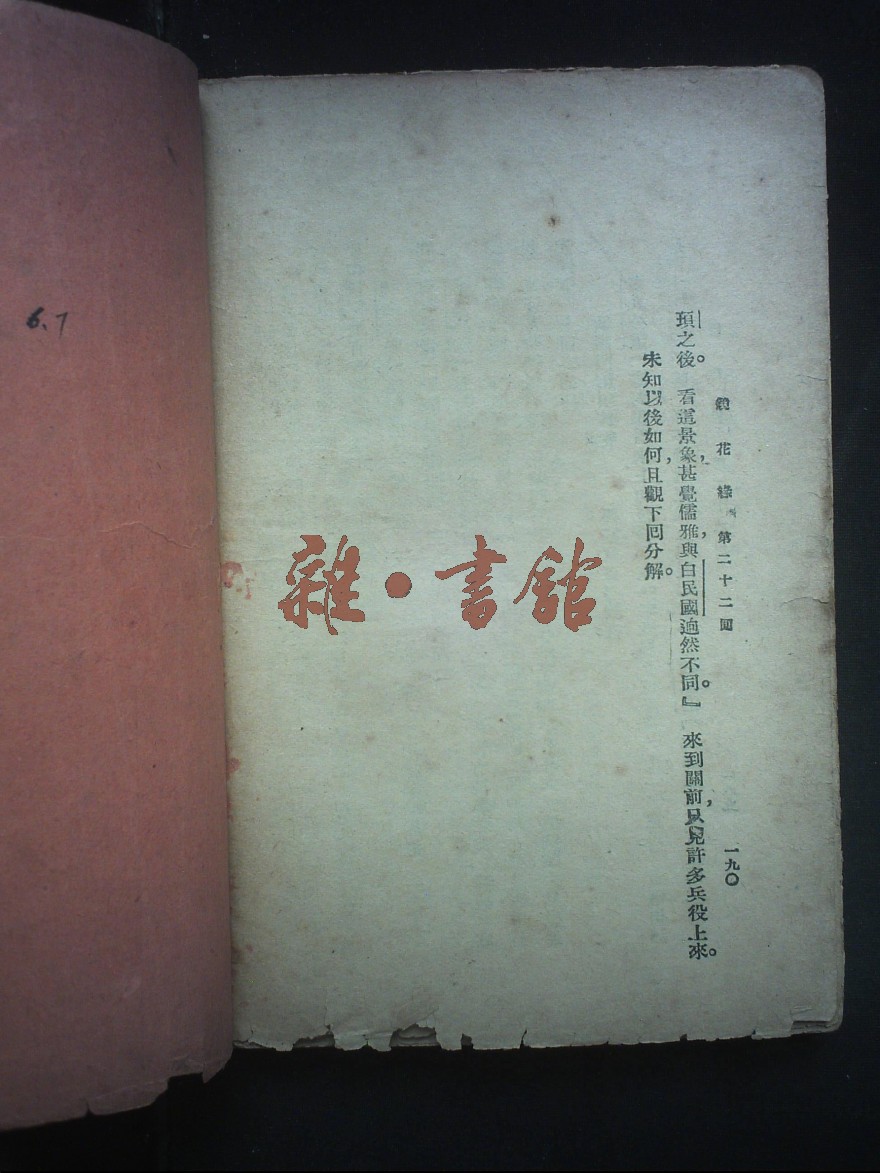 鏡花緣 第二十二回 一九〇
頊之後。看這景象，甚覺儒雅，與白民國迥然不同。』來到關前，只見許多兵役上來。
未知以後如何，且觀下回分解。
雜·書館
6.7